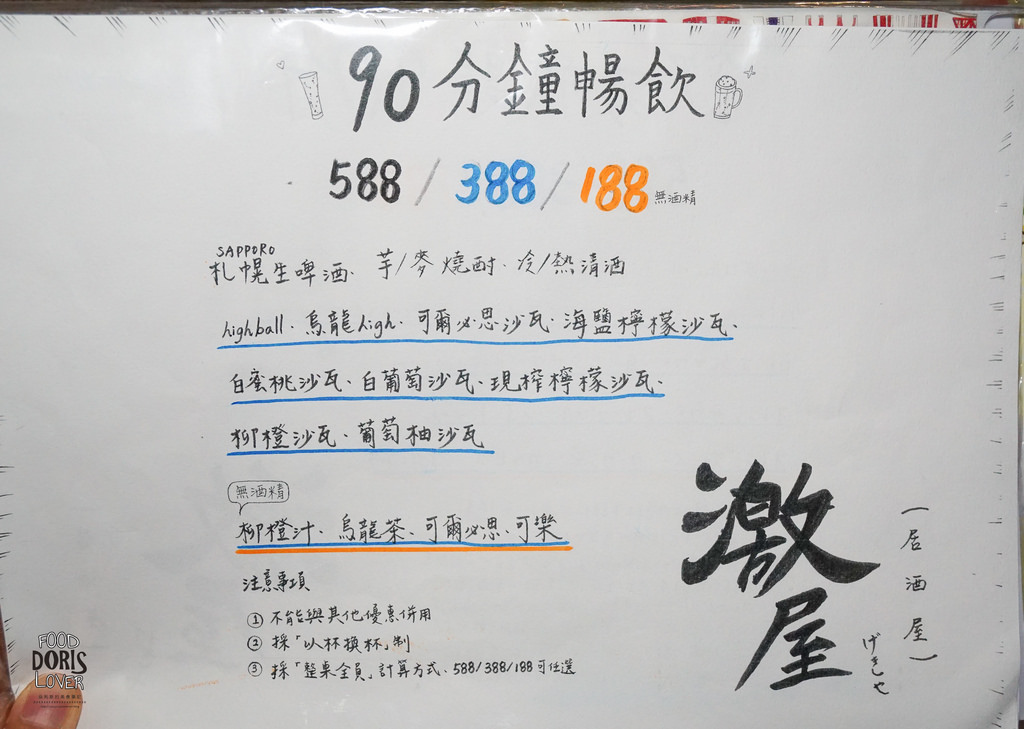 90分鐘暢飲
588 / 388 / 188 無酒精
SAPPORO
札幌生啤酒、芋/麥燒酎、冷/熱清酒
highball、烏龍high、可爾必思沙瓦、海鹽檸檬沙瓦、
白蜜桃沙瓦、白葡萄沙瓦、現榨檸檬沙瓦、
柳橙沙瓦、葡萄柚沙瓦
無酒精
柳橙汁、烏龍茶、可爾必思、可樂
注意事項
① 不能與其他優惠併用
② 採「以杯換杯」制
③ 採「整桌全員」計算方式、588/388/188可任選
激屋
(居酒屋)
げきや
FOOD
DORIS
LOVER